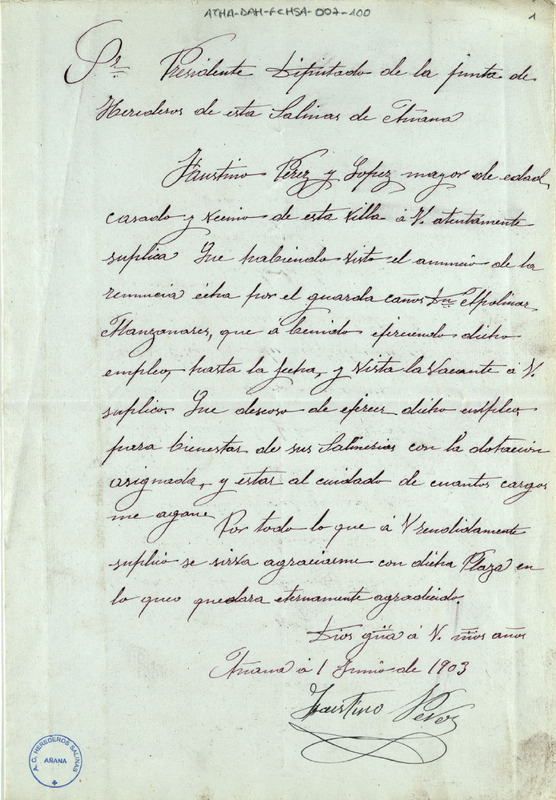 ATHA-DAH-FCHSA-007-100
1
Sr. Presidente Diputado de la junta de
Herederos de esta Salinas de Añana
Faustino Perez y Lopez mayor de edad,
casado y vecino de esta villa á V. atentamente
suplica Que habiendo visto el anuncio de la
renuncia écha por el guarda caños Dn Apolinar
Manzanares, que á benido ejerciendo dicho
empleo, hasta la fecha, y vista la vacante á V.
suplico, Que deseoso de ejercer dicho empleo,
para bienestar de sus Salinerias con la dotación
asignada, y estar al cuidado de cuantos cargos
me agane
Por todo lo que á V rendidamente
suplico se sirva agraciarme con dicha Plaza en
lo queo quedara eternamente agradicido.
Dios güa á V. müos años
Añana á 1 Junio de 1903
Faustino Perez
A.C. HEREDEROS SALINAS
AÑANA